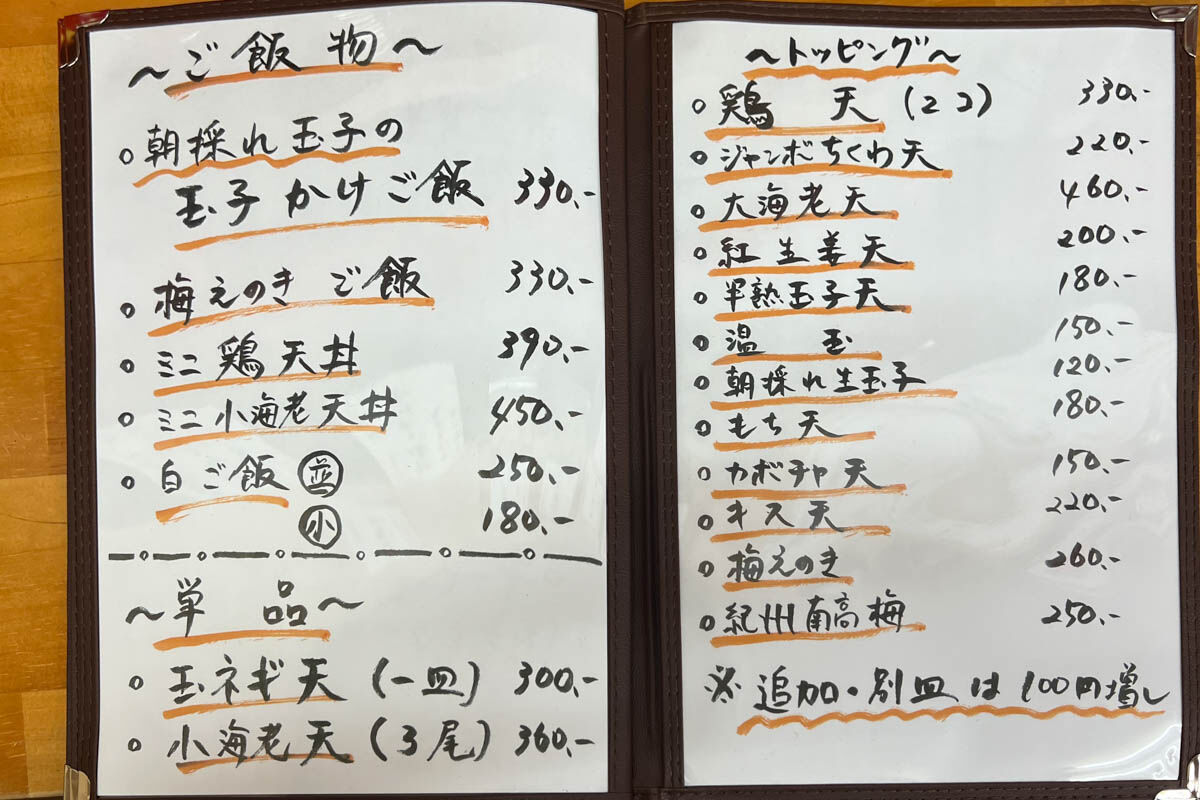 ～ご飯物～
○朝採れ玉子の
玉子かけご飯 330.-
○梅えのきご飯 330.-
○ミニ鶏天丼 390.-
○ミニ小海老天丼 450.-
○白ご飯 ㊀並 250.-
小 180.-
～単品～
○玉ネギ天(一皿) 300.-
○小海老天(3尾) 360.-
～トッピング～
○鶏天(2コ) 330.-
○ジャンボちくわ天 220.-
○大海老天 460.-
○紅生姜天 200.-
○半熟玉子天 180.-
○温玉 150.-
○朝採れ生玉子 120.-
○もち天 180.-
○カボチャ天 150.-
○キス天 220.-
○梅えのき 260.-
○紀州南高梅 250.-
※追加・別皿は100円増し